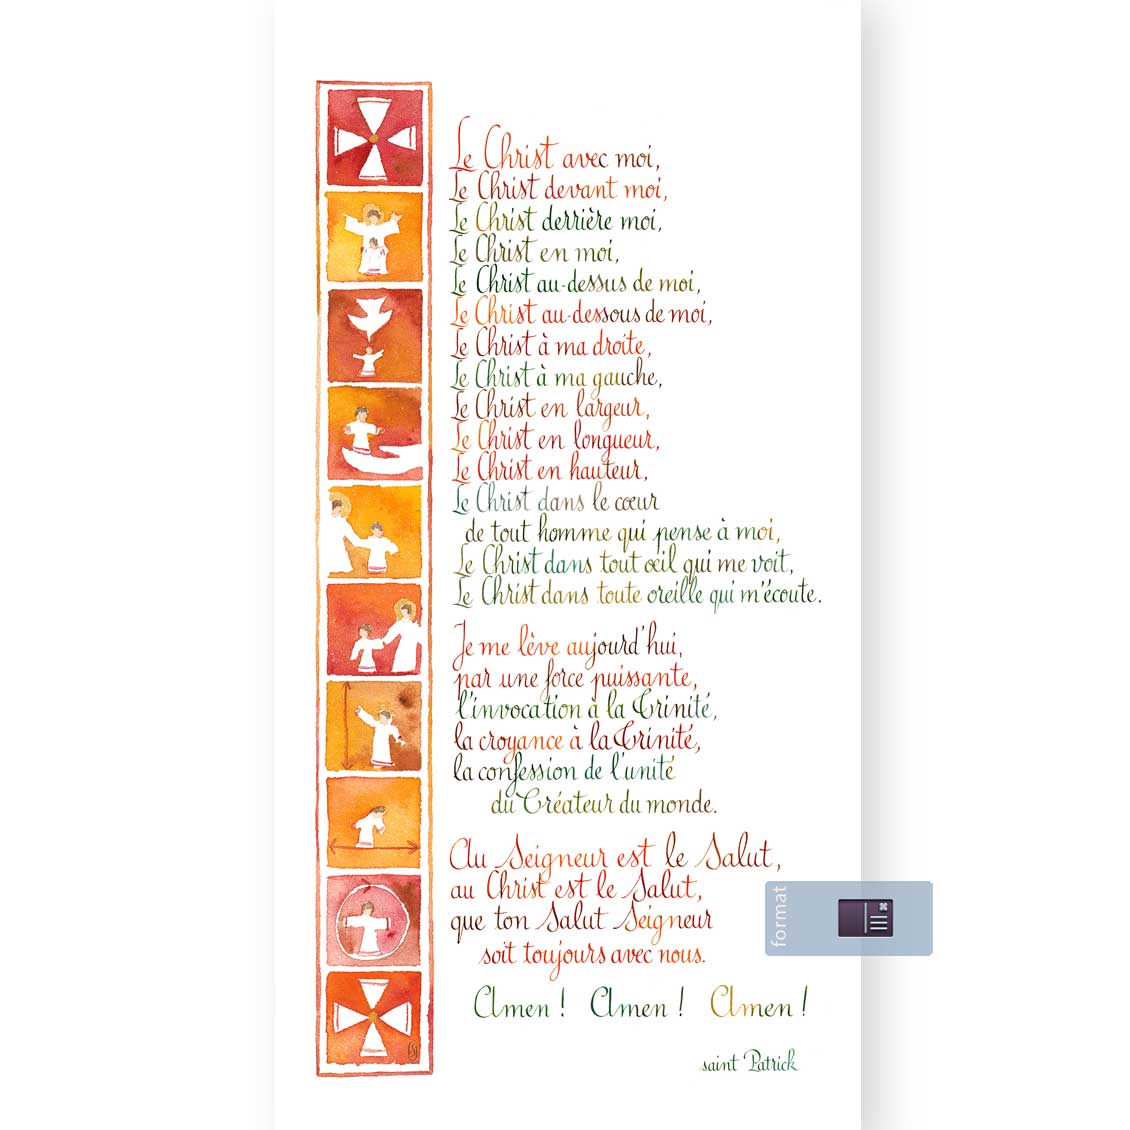 Le Christ avec moi,
Le Christ devant moi,
Le Christ derrière moi,
Le Christ en moi,
Le Christ au-dessus de moi,
Le Christ au-dessous de moi,
Le Christ à ma droite,
Le Christ à ma gauche,
Le Christ en largeur,
Le Christ en longueur,
Le Christ en hauteur,
Le Christ dans le cœur
de tout homme qui pense à moi,
Le Christ dans tout œil qui me voit,
Le Christ dans toute oreille qui m'écoute.
Je me lève aujourd'hui,
par une force puissante,
l'invocation à la Trinité,
la croyance à la Trinité,
la confession de l'unité
du Créateur du monde.
Au Seigneur est le Salut,
au Christ est le Salut,
que ton Salut Seigneur
soit toujours avec nous.
Amen ! Amen ! Amen !
saint Patrick
format